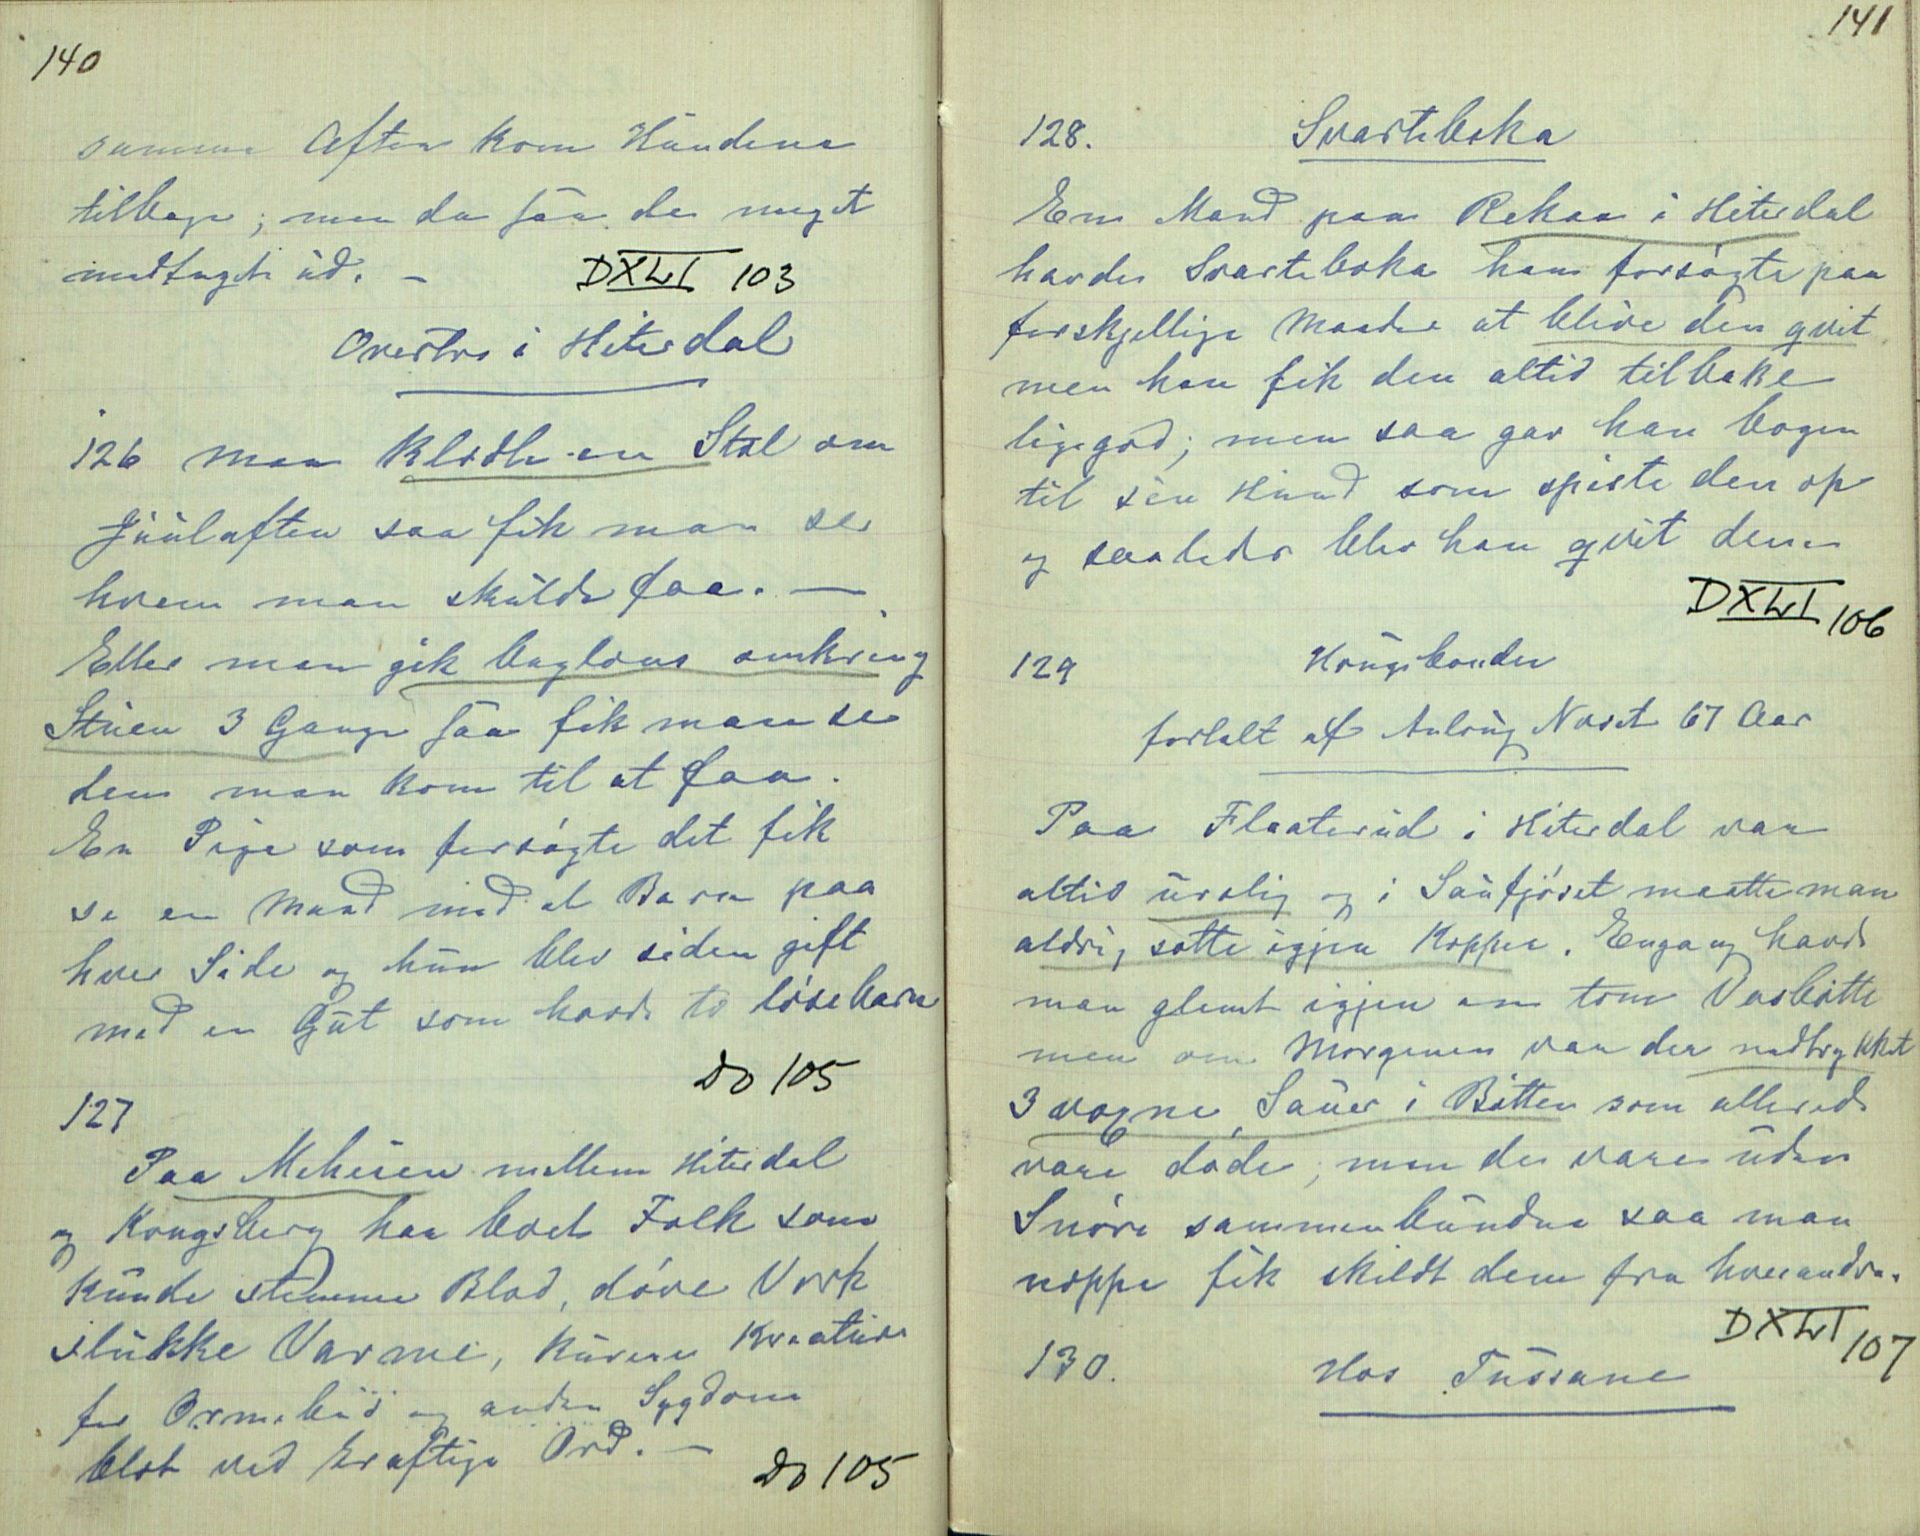 140
samme Aften kom Hundene
tilbage; men da saa de meget
medtaget ud. -
DXLI 103
Overtro i Hiterdal
126 Man Klædte en Stol om
Juulaften saa fik man se
hvem man skulde faa. —
Eller man gik baglæns omkring
Stuen 3 Gange saa fik man se
den man kom til at faa.
En Pige som forsøgte det fik
se en Mand med et Barn paa
hver Side og hun blev siden gift
med en Gut som havde to løsebarn
Do 105
127
Paa Meheien mellem Hiterdal
og Kongsberg har boet Folk som
kunde stemme Blod, døve Værk
slukke Varme, kurere Kreature
for Ormebid og anden Sygdom
blot ved kraftige Ord. —
Do 105
141
128. Svarteboka
En Mand paa Rekaa i Hiterdal
havde Svarteboka han forsøgte paa
forskjellige Maader at blive den qvit
men han fik den altid tilbake
ligegod; men saa gav han bogen
til sin Hund som spiste den op
og saaledes blev han qvit den
DXLI 106
129 Haugebonden
fortalt af Aslaug Næset 67 Aar
Paa Flaaterud i Hiterdal var
altid urolig og i Saufjøset maatte man
aldrig sætte igjen Kopper. Engang havde
man glemt igjen en tom Vasbøtte
men om Morgenen var der nedtrykket
3 voxne Sauer i Bøtten som allerede
vare døde; men de vare uden
Snøre sammenbundne saa man
noppe fik skildt dem fra hverandre.
DXLI 107
130. Hos Tussane